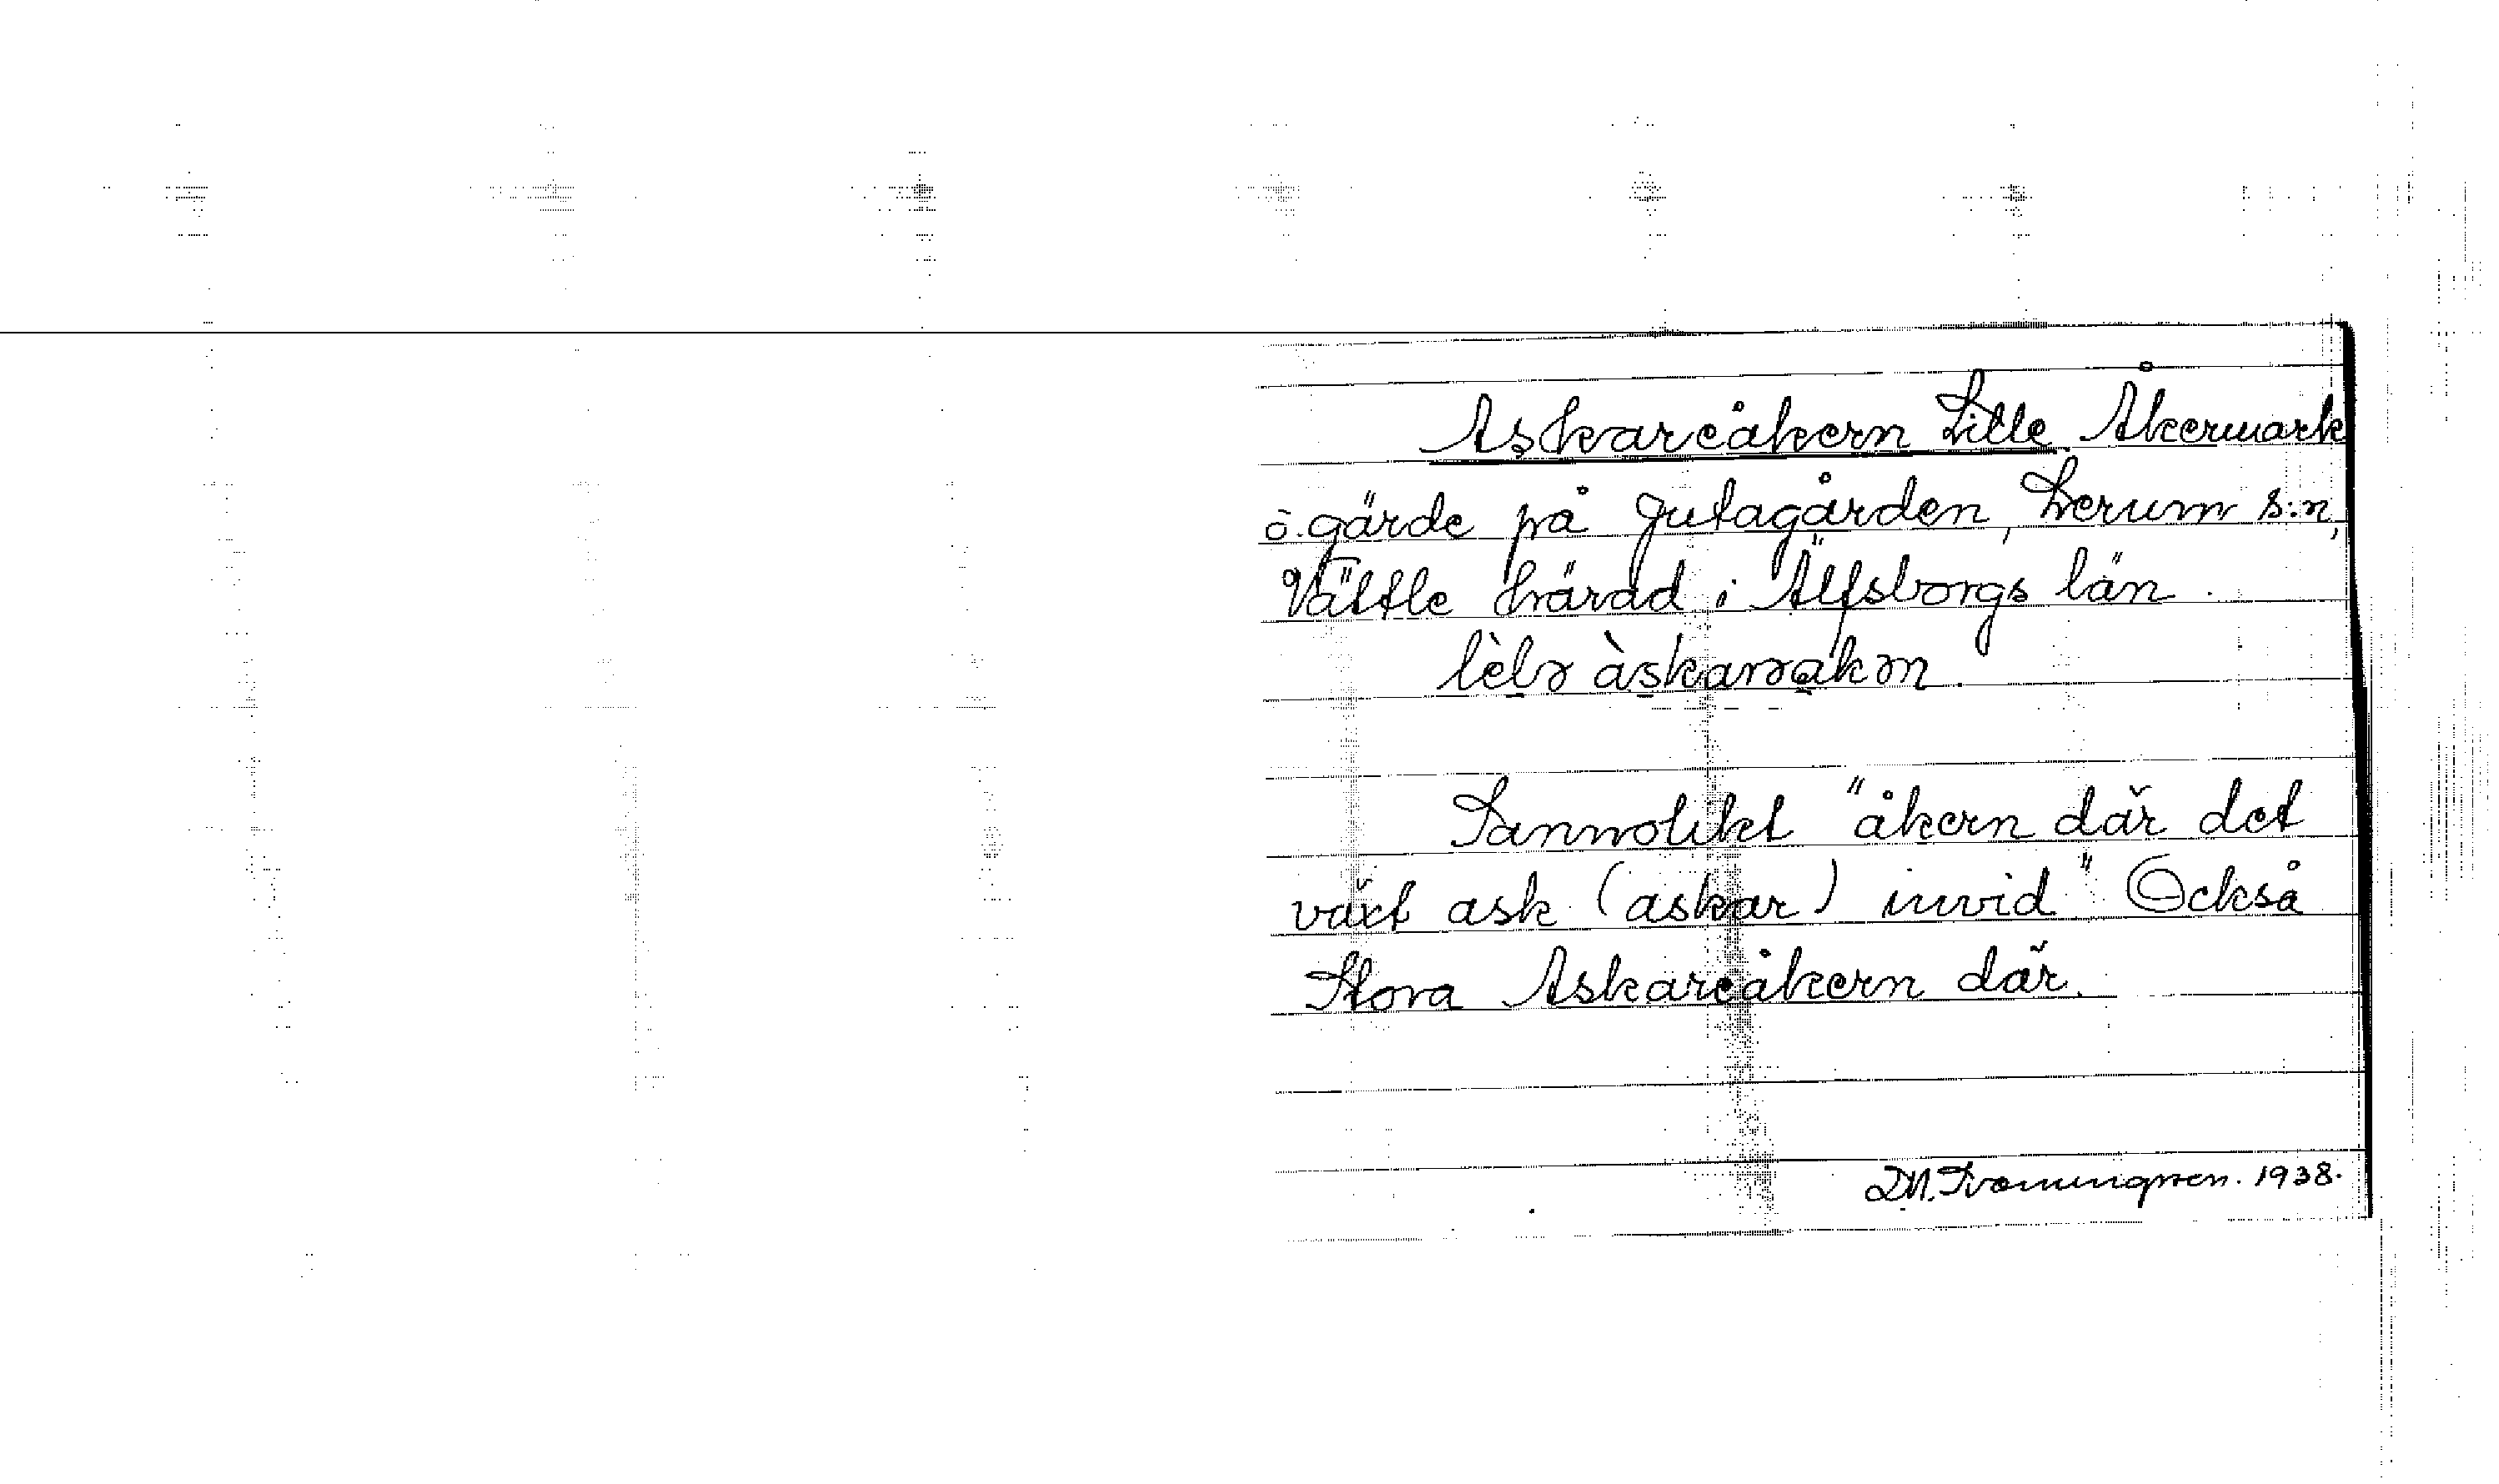 Askareåkern Lille Åkermark
ö. gärde på Jutagården, Lerum s:n,
Vättle härad i Älfsborgs län.
Sannolikt "åkern där det
växt ask (askar) invid" Också
Stora Askareåkern där.
1938.